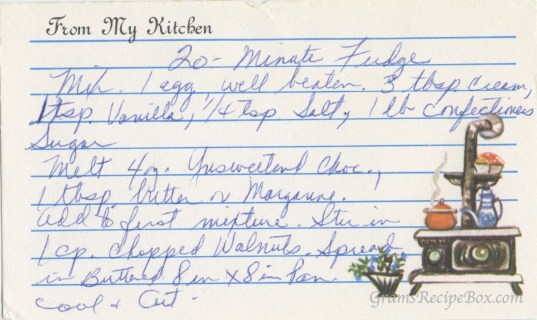 From My Kitchen
20-Minute Fudge
Mix. 1 egg, well beaten. 3 tbsp. cream,
1 tsp Vanilla, 1/4 tsp Salt, 1 lb confectioners
Sugar
Melt 4 oz. Unsweetend Choc.,
1 tbsp. butter or Margarine.
add to first mixture. Stir in
1 cp. chopped Walnuts. Spread
in Buttered 8 in X 8 in Pan.
Cool + Cut.
GramsRecipeBox.com